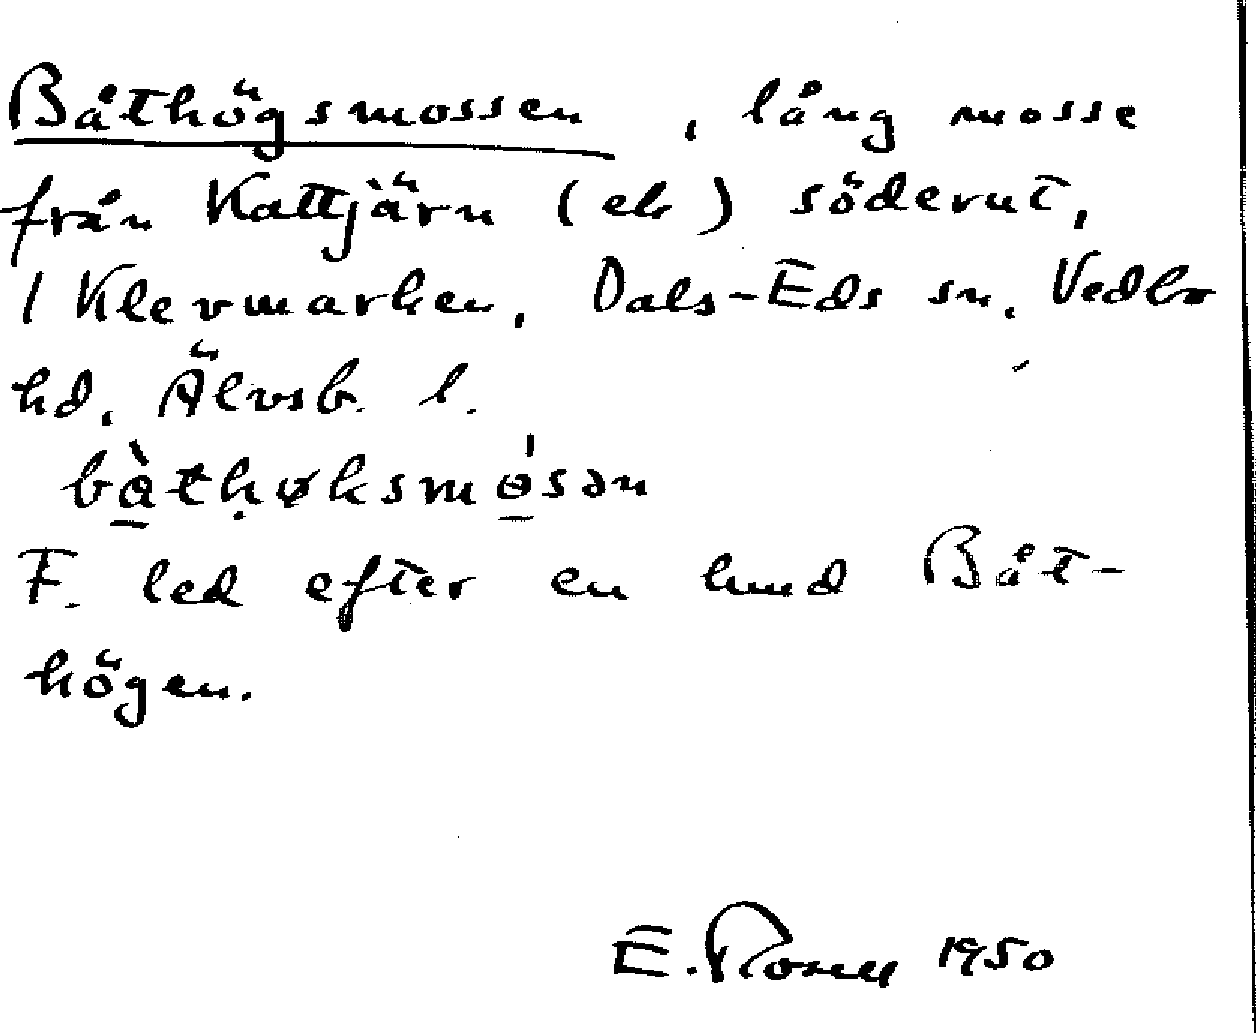 Båthögsmossen, lång mosse
från Kattjärn (ek) söderut,
i Klevmarken, Dals-Eds sn, Vedbo
hd, Älvsb. l.
bàthøksmósən
F. led efter en hund Båt-
högen.
E. 1950